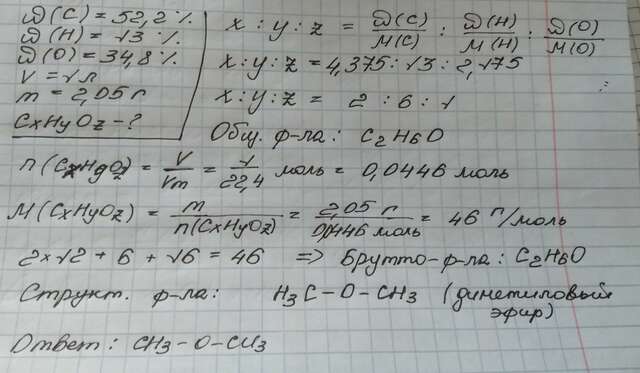 ω(C) = 52,2 %
ω(H) = 13 %
ω(O) = 34,8 %
V = 1 л
m = 2,05 г
CxHyOz - ?
x : y : z = ω(C)/M(C) : ω(H)/M(H) : ω(O)/M(O)
x : y : z = 4,375 : 13 : 2,175
x : y : z = 2 : 6 : 1
Общ. ф-ла: C2H6O
n(CxHyOz) = V/Vm = 1/22,4 моль = 0,0446 моль
M(CxHyOz) = m/n(CxHyOz) = 2,05 г/0,0446 моль = 46 г/моль
2×12 + 6 + 16 = 46 => Брутто-ф-ла: C2H6O
Структ. ф-ла: H3C - O - CH3 (диметиловый
эфир)
Ответ: CH3 - O - CH3